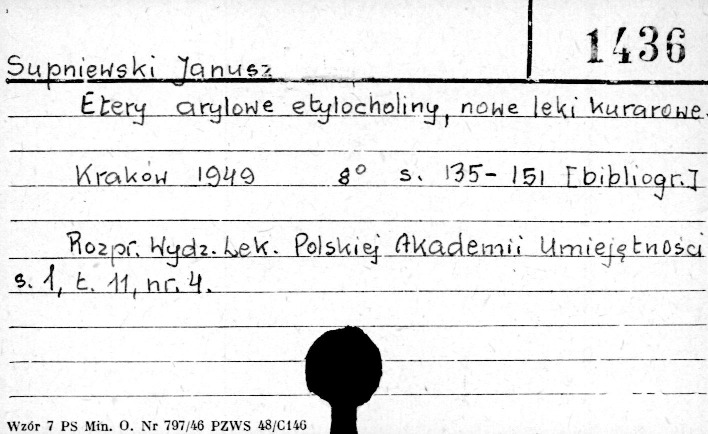 1436
Supniewski Janusz
Etery arylowe etylocholiny, nowe leki kurarowe.
Kraków 1949 8° s. 135-151 [bibliogr.]
Rozpr. Wydz. Lek. Polskiej Akademii Umiejętności
s. 1, t. 11, nr. 4.
Wzór 7 PS Min. O. Nr 797/46 PZWS 48/C146